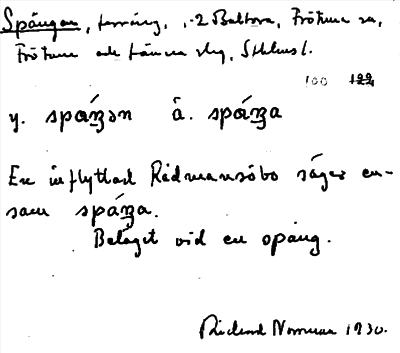 Spångan, terräng, 2 Baltora, Frötuna sn,
Frötuna och Länna slg, Sthlms l.
100 122
y. spáŋ̱ən å. spáŋ̱a
En inflyttad Rådmansöbo säger en-
sam spáŋ̱a.
Beläget vid en spång.
Rickard 1930.